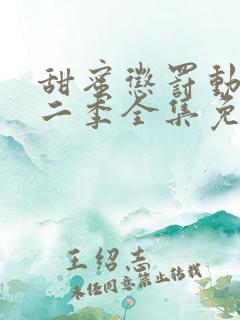 甜蜜懲罰動
二季全集免
王绍志
未经同意禁止转载